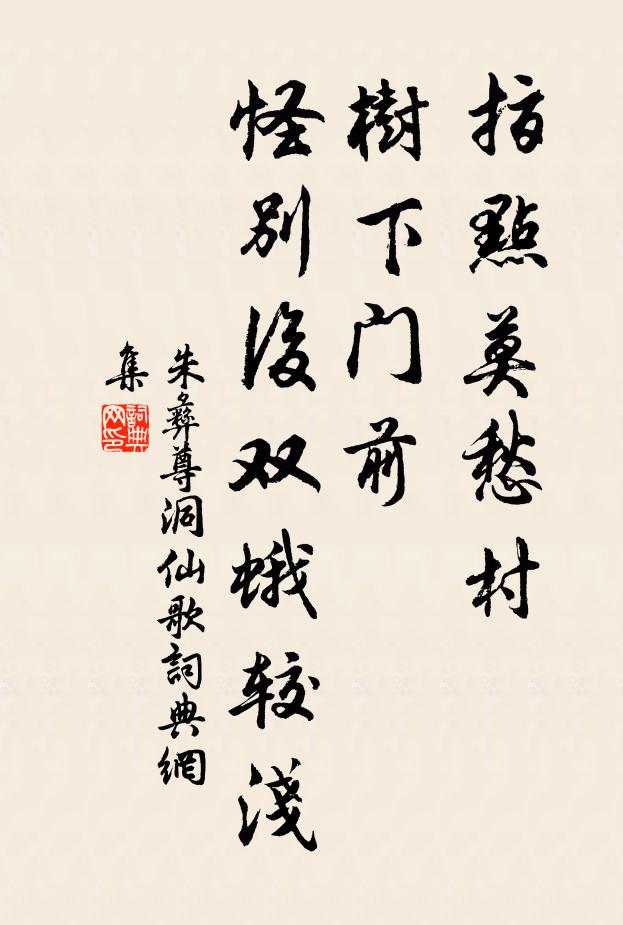 指點莫愁村
樹下门前
怪別後双蛾较淺
朱彝尊洞仙歌詞典網
集
詞典
网印